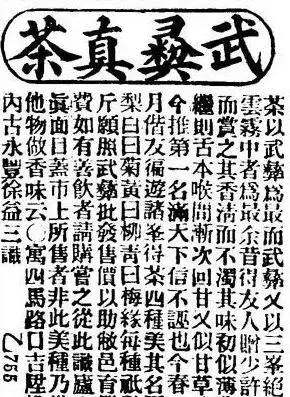 武彝真茶
茶以武彝爲最而武彝又以三峯絶
雲霧中者爲最余昔得友人贈少許
而賞之其香清而不濁其味初似薄
繼則舌本喉間漸次回甘又似甘草
今推第一名滿天下信不誣也今春
月偕友徧遊諸峯得茶四種美其名
梨曰菊黄曰柳青曰梅綠每種祇
斤願照武彝批發售價以助邑育
費如有善飲者請購嘗之從此識廬
眞面目蓋市上所售者非此美種乃
他物做香味云〇寓四馬路口吉陞
内古永豐徐益三識 乙755